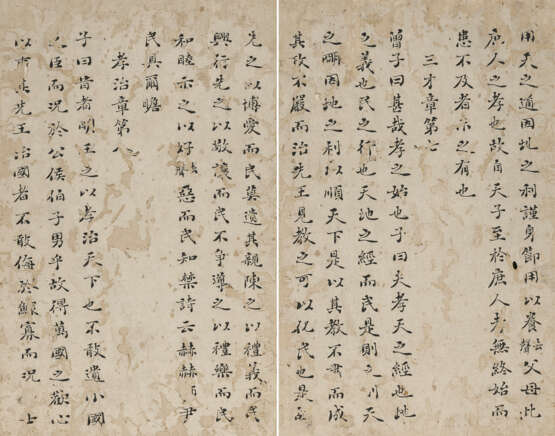 用天之道因地之利謹身節用以養去聲父母此
庶人之孝也故自天子至於庶人孝無終始而
患不及者未之有也
三才章第七
曾子曰甚哉孝之始也子曰夫孝天之經也地
之義也民之行也天地之經而民是則之則天
之明因地之利以順天下是以其教不肅而成
其政不嚴而治先王見教之可以化民也是故
先之以博愛而民莫遺其親陳之以禮義而民
興行先之以敬讓而民不爭導之以禮樂而民
和睦示之以好惡而民知禁詩云赫赫師尹
民具爾瞻
孝治章第八
子曰昔者明王之以孝治天下也不敢遺小國
之臣而況於公侯伯子男乎故得萬國之歡心
以事其先王治國者不敢侮於鰥寡而況士